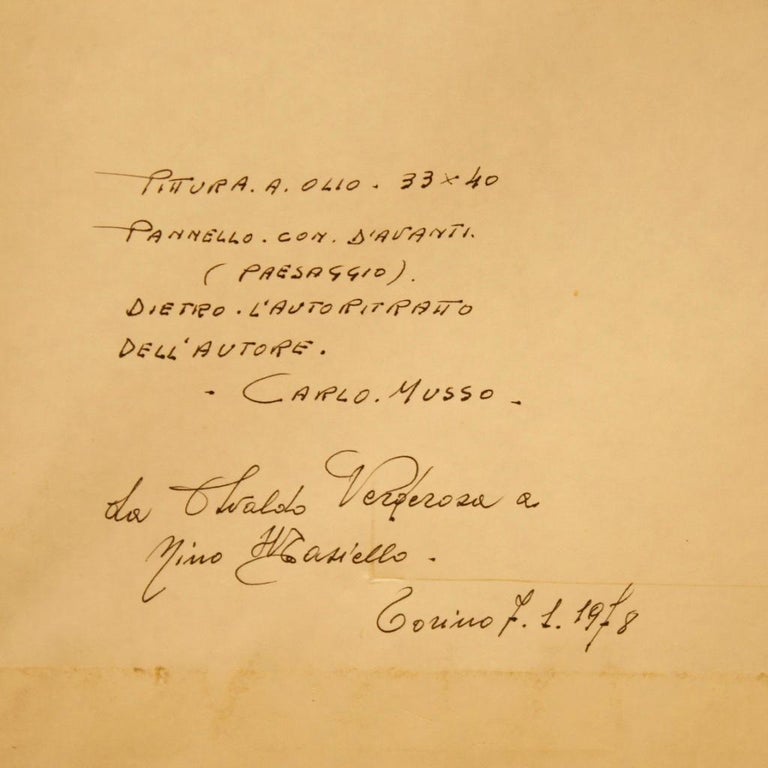 PITTURA. A. OLIO. 33x40
PANNELLO. CON. D'AVANTI.
(PAESAGGIO).
DIETRO. L'AUTORITRATTO
DELL'AUTORE.
- CARLO. MUSSO -
Da Osvaldo Verderosa a
Nino Masiello.
Torino 7. 1. 1978